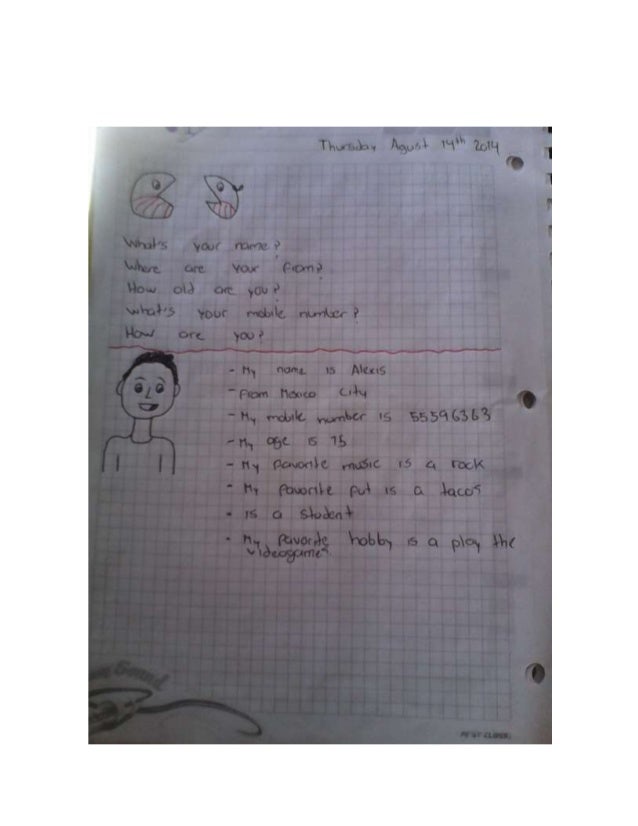 Thursday Agust 14th 2014
What's your name?
Where are your from?
How old are you?
What's your mobile number?
How are you?
- My name is Alexis
- From Mexico City
- My mobile number is 55596363
- My age is 15
- My favorite music is a rock
- My favorite fut is a tacos
- is a student
- My favorite hobby is a play the
videogames